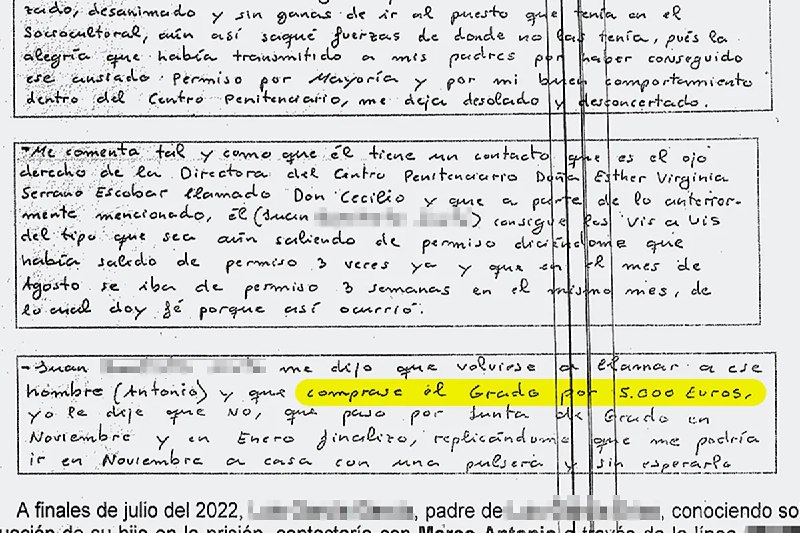 zado, desanimado y sin ganas de ir al puesto que tenía en el
Sociocultural, aún así saqué fuerzas de donde no las tenía, pués la
alegría que había transmitido a mis padres por haber conseguido
ese ansiado Permiso por Mayoría y por mi buen comportamiento
dentro del Centro Penitenciario, me deja desolado y desconcertado.
-Me comenta tal y como que él tiene un contacto que es el ojo
derecho de la Directora del Centro Penitenciario Doña Esther Virginia
Serrano Escobar llamado Don Cecilio y que a parte de lo anterior-
mente mencionado, él (Juan ) consigue los Vis a Vis
del tipo que sea aún saliendo de permiso diciéndome que
había salido de permiso 3 veces ya y que en el mes de
Agosto se iba de permiso 3 semanas en el mismo mes, de
lo cual doy fé porque así ocurrió.
-Juan me dijo que volviese a llamar a ese
hombre (Antonio) y que comprase el Grado por 5.000 Euros,
yo le dije que No, que paso por Junta de Grado en
Noviembre y en Enero finalizo, replicándome que me podría
ir en Noviembre a casa con una pulsera y sin esperarlo
A finales de julio del 2022, , padre de , conociendo so
uación de su hijo en la prisión, contactaría con Marco Antonio a través de la línea